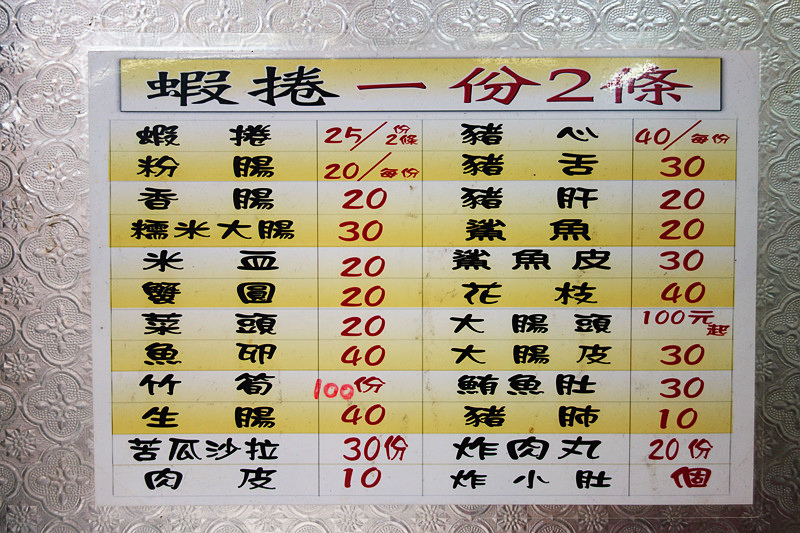 蝦捲一份2條
蝦捲 25/份2條 豬心 40/每份
粉腸 20/每份 豬舌 30
香腸 20 豬肝 20
糯米大腸 30 鯊魚 20
米血 20 鯊魚皮 30
蟹圓 20 花枝 40
菜頭 20 大腸頭 100元起
魚卵 40 大腸皮 30
竹筍 100份 鮪魚肚 30
生腸 40 豬肺 10
苦瓜沙拉 30份 炸肉丸 20份
肉皮 10 炸小肚 個